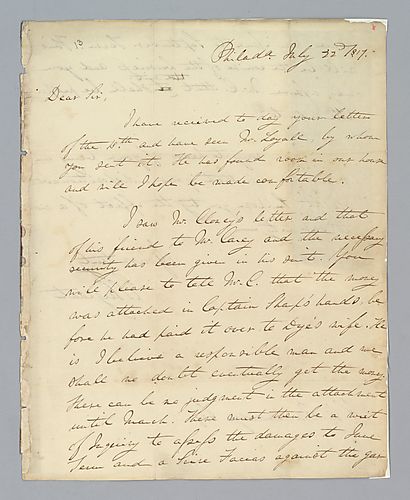 13
Philada. July 22d 1817.
Dear Sir,
I have received to day your letter
of the 18th and have seen Mr. Loyall by whom
you sent it. He has found room in our house
and will I hope be made comfortable.
I saw Mr. Cloney's letter and that
of his friend to Mr. Carey and the necessary
security has been give in his suit. You
will please to tele Mr. C. that the money
was attached in Captain Sharp's hands, be
fore he had paid it over to Dye's wife. He
is I believe a responsible man and we
shall no doubt eventually get the money.
There can be no judgment in the attachment
until March. There must then be a writ
of Inquiry to assess the damages to June
Term and a Scire Facias against the gar